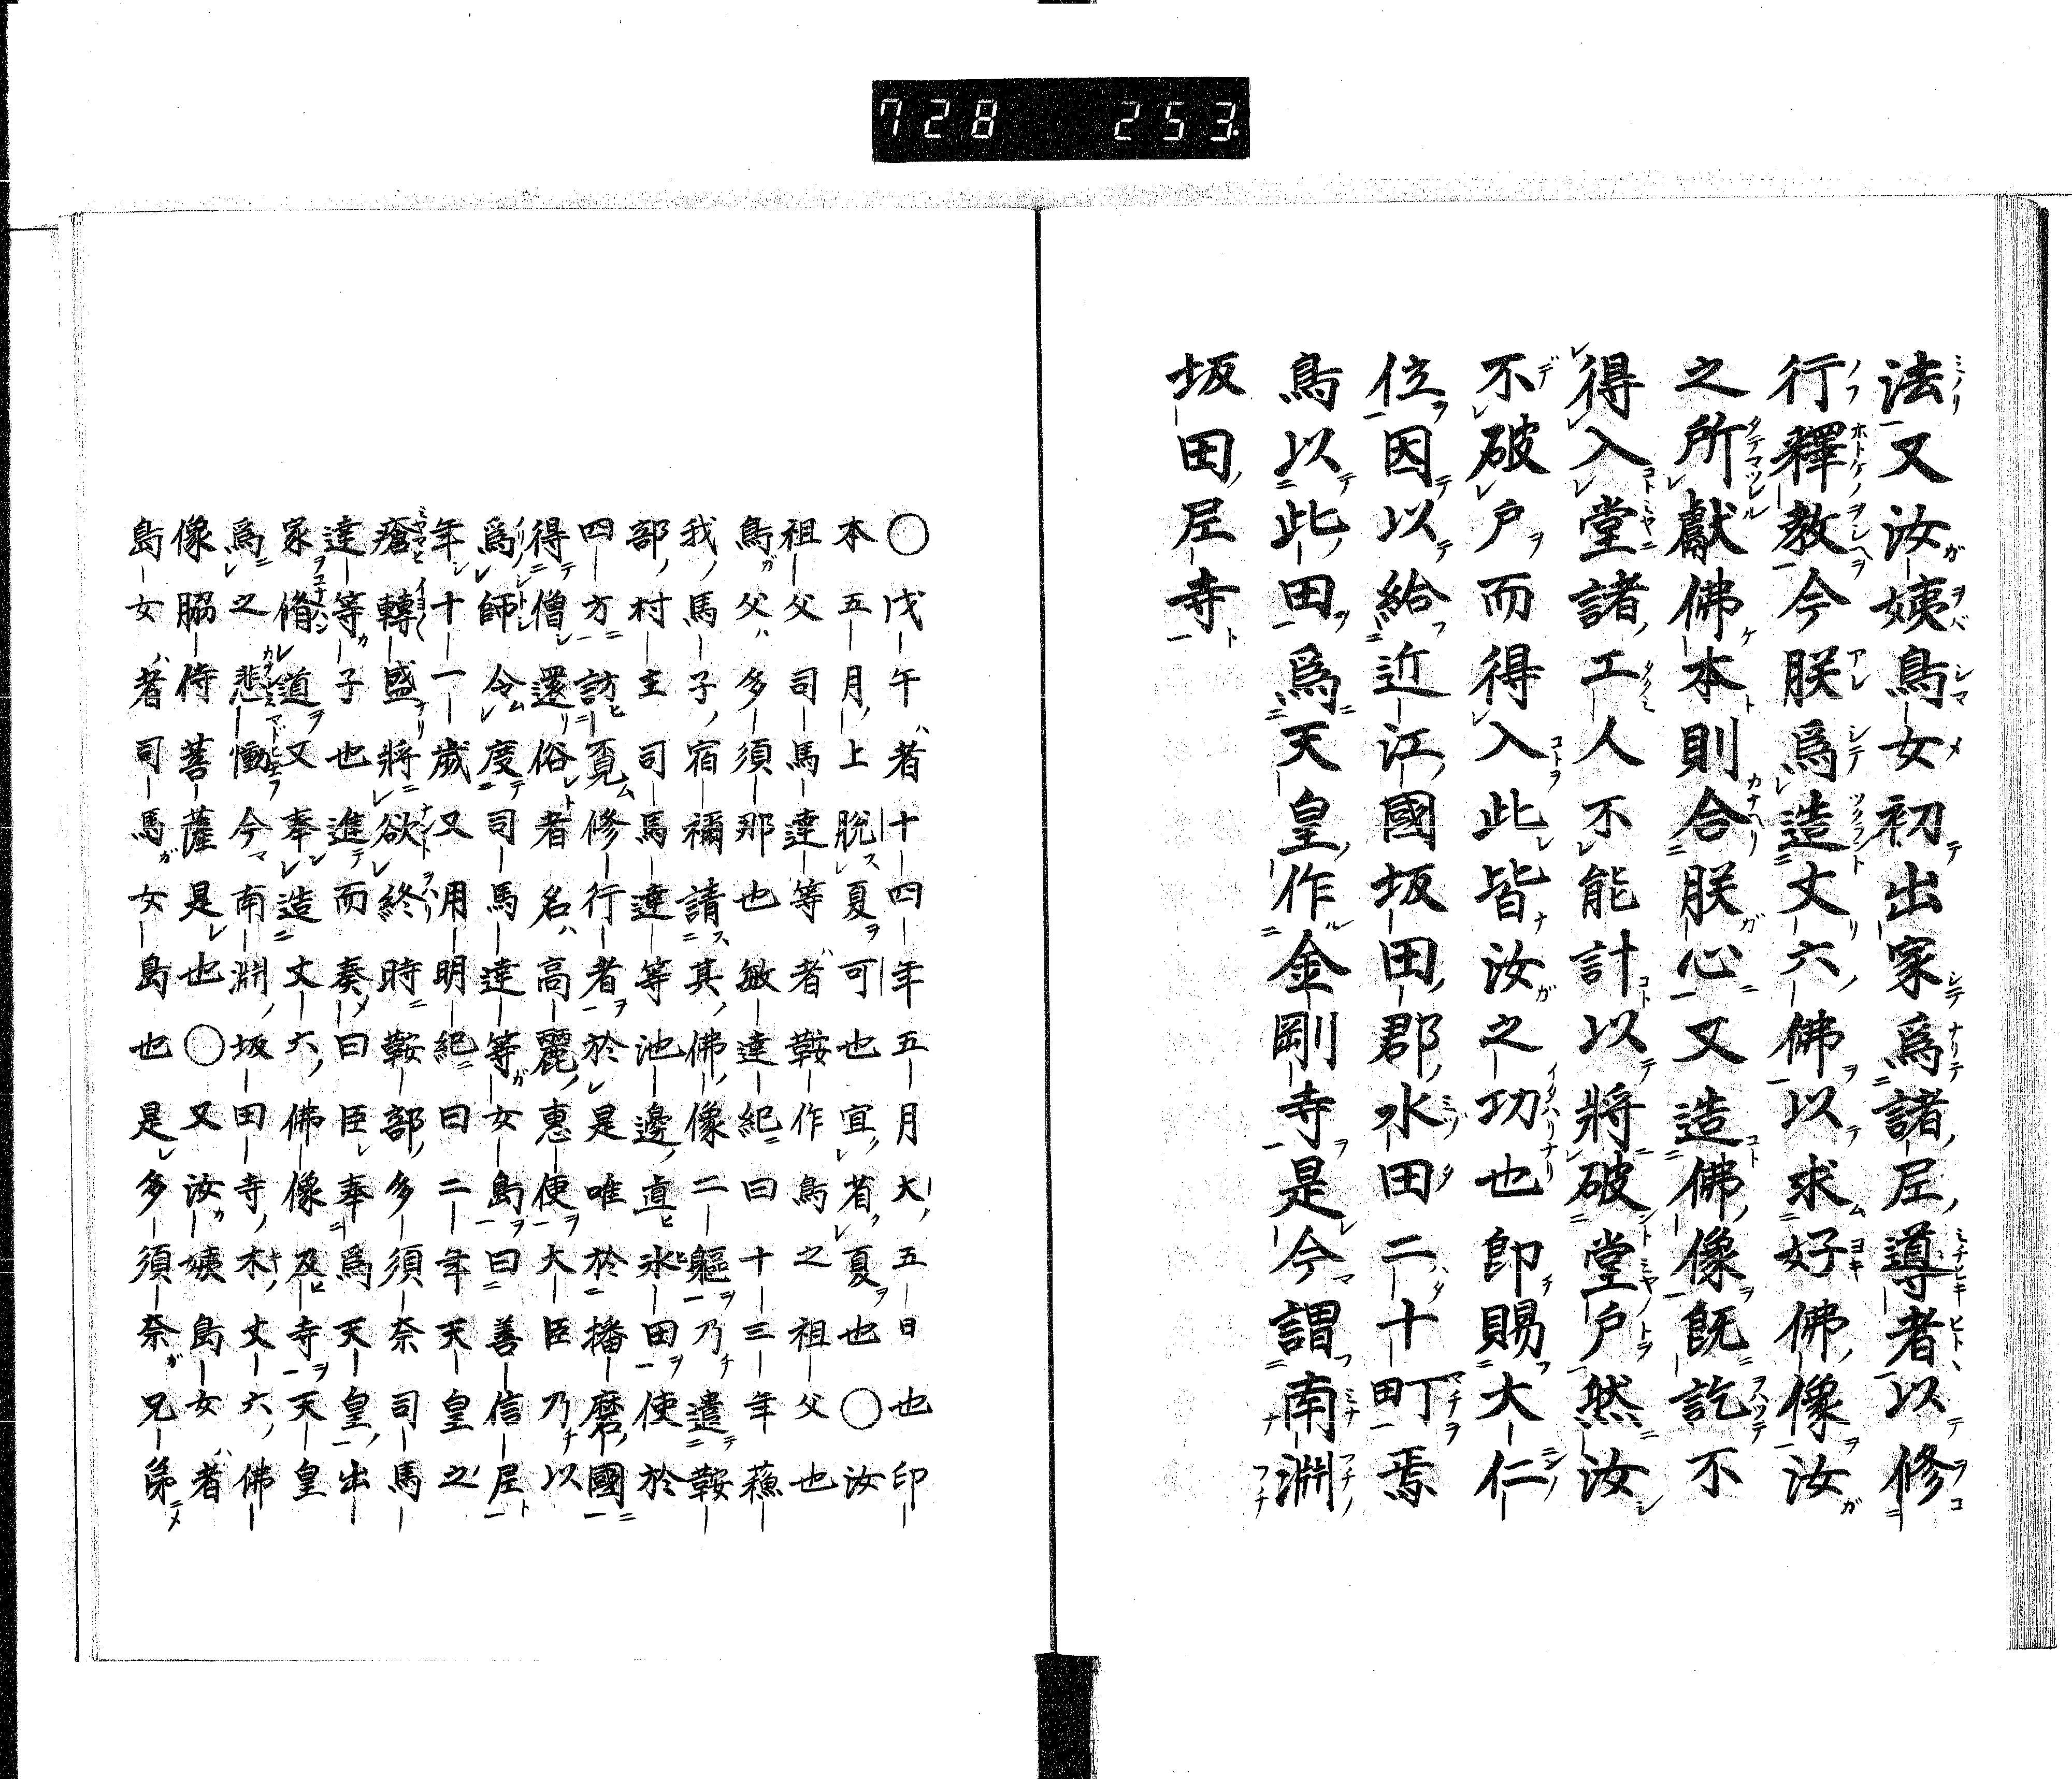 728 253.
法又汝姨島女初出家爲諸尼導者以修
行釋教今朕爲造丈六佛以求好佛像汝
之所獻佛本則合朕心又造佛像既訖不
得入堂諸工人不能計以將破堂戶然汝
不破戶而得入此皆汝之功也卽賜大仁
位因以給近江國坂田郡水田二十町焉
鳥以此田爲天皇作金剛寺是今謂南淵
坂田尼寺
○戊午者十四年五月大五日也印
本五月上脫夏可也宜有夏也○汝
祖父司馬達等者鞍作鳥之祖父也
鳥父多須那也敏達紀曰十三年蘓
我馬子宿禰請其佛像二軀乃遣鞍
部村主司馬達等池邊直氷田使於
四方訪覓修行者於是唯於播磨國
得僧還俗者名高麗惠便大臣乃以
爲師令度司馬達等女島曰善信尼
年十一歲又用明紀曰二年天皇之
瘡轉盛將欲終時鞍部多須奈司馬
達等子也進而奏曰臣奉爲天皇出
家脩道又奉造丈六佛像及寺天皇
爲之悲慟今南淵坂田寺木丈六佛
像脇侍菩薩是也○又汝姨島女者
島女者司馬女島也是多須奈兄弟